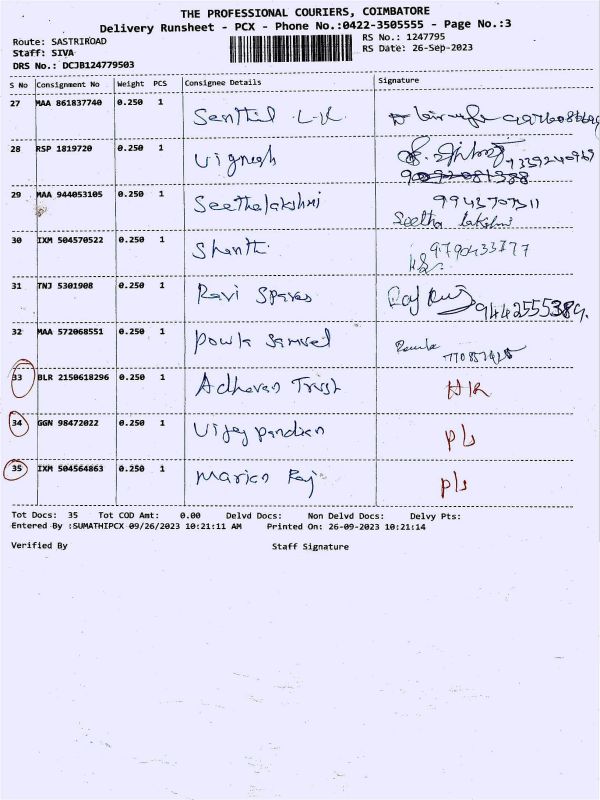 THE PROFESSIONAL COURIERS, COIMBATORE
Delivery Runsheet - PCX - Phone No.:0422-3505555 - Page No.:3
Route: SASTRIROAD
RS No.: 1247795
Staff: SIVA
RS Date: 26-Sep-2023
DRS No.: DCJB124779503
S No Consignment No Weight PCS Consignee Details Signature
27 MAA 861837740 0.250 1 Senthil L.K.
28 RSP 1819720 0.250 1 Vignesh
29 MAA 944053105 0.250 1 Seethalakshmi 9942707311
Seetha lakshmi
30 IXM 504570522 0.250 1 Shanthi 9790433777
31 TNJ 5301908 0.250 1 Ravi Spares 9442555389.
32 MAA 572068551 0.250 1 Powla Samvel
33 BLR 2150618296 0.250 1 Adhavan Trust
34 GGN 98472022 0.250 1 Vijay pandian P/s
35 IXM 504564863 0.250 1 Marian Raj P/s
Tot Docs: 35 Tot COD Amt: 0.00 Delvd Docs: Non Delvd Docs: Delvy Pts:
Entered By :SUMATHIPCX 09/26/2023 10:21:11 AM Printed On: 26-09-2023 10:21:14
Verified By Staff Signature